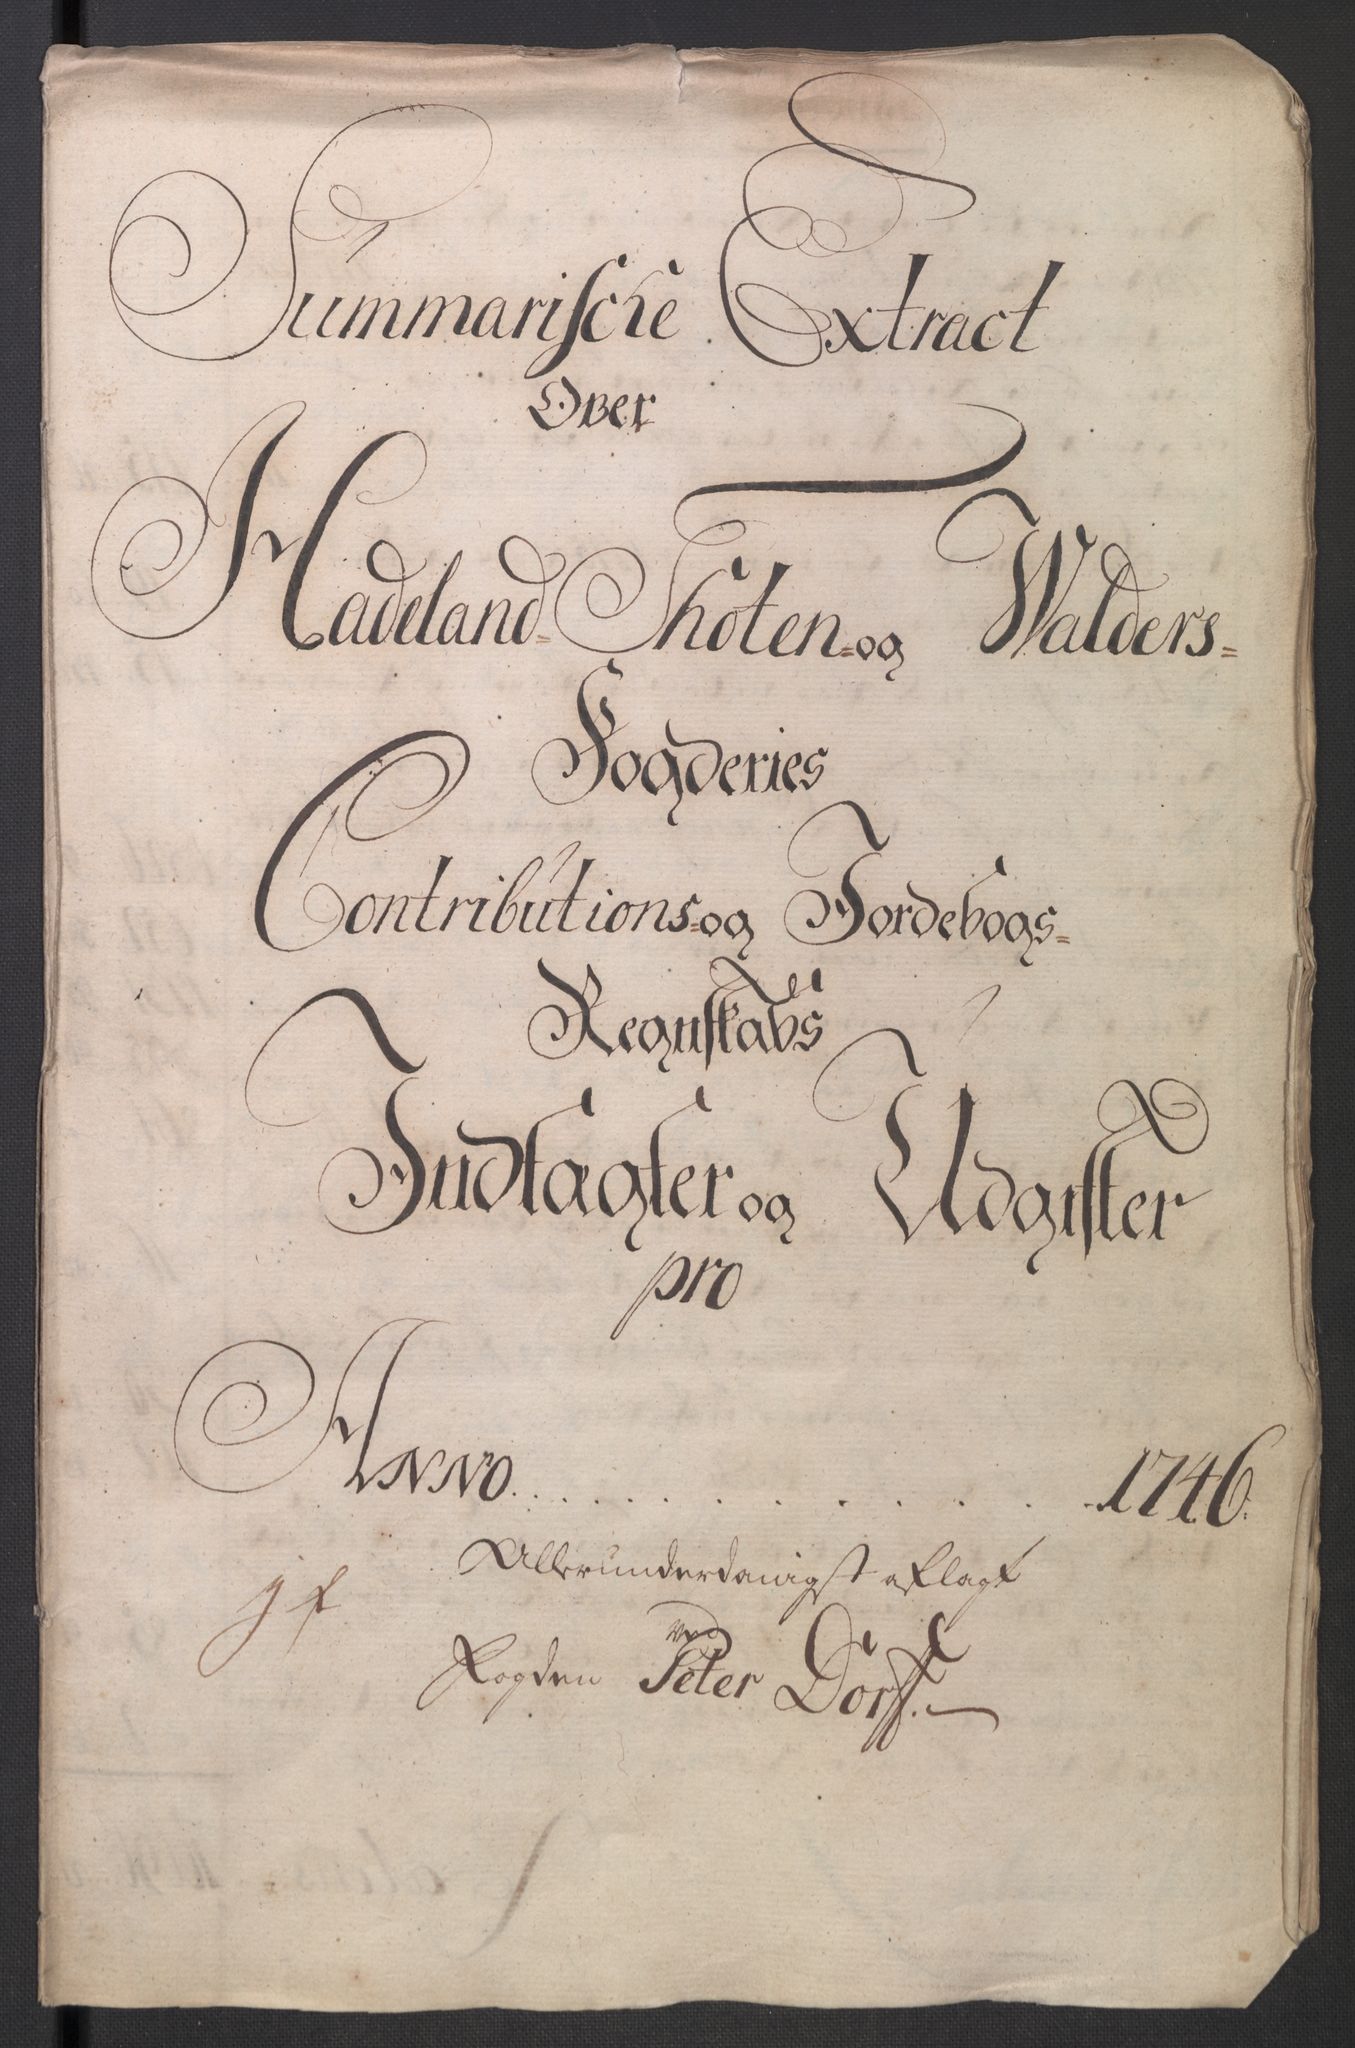 Summarische Extract
Over
Hadeland- Thoten- og Walders-
Fogderies
Contributions- og Jordebogs-
Regnskabs
Indtægter og Udgifter
pro
Anno . . . . . . . . . . . 1746.
Allerunderdanigst aflagt
ved
Fogden Peter Dorff.